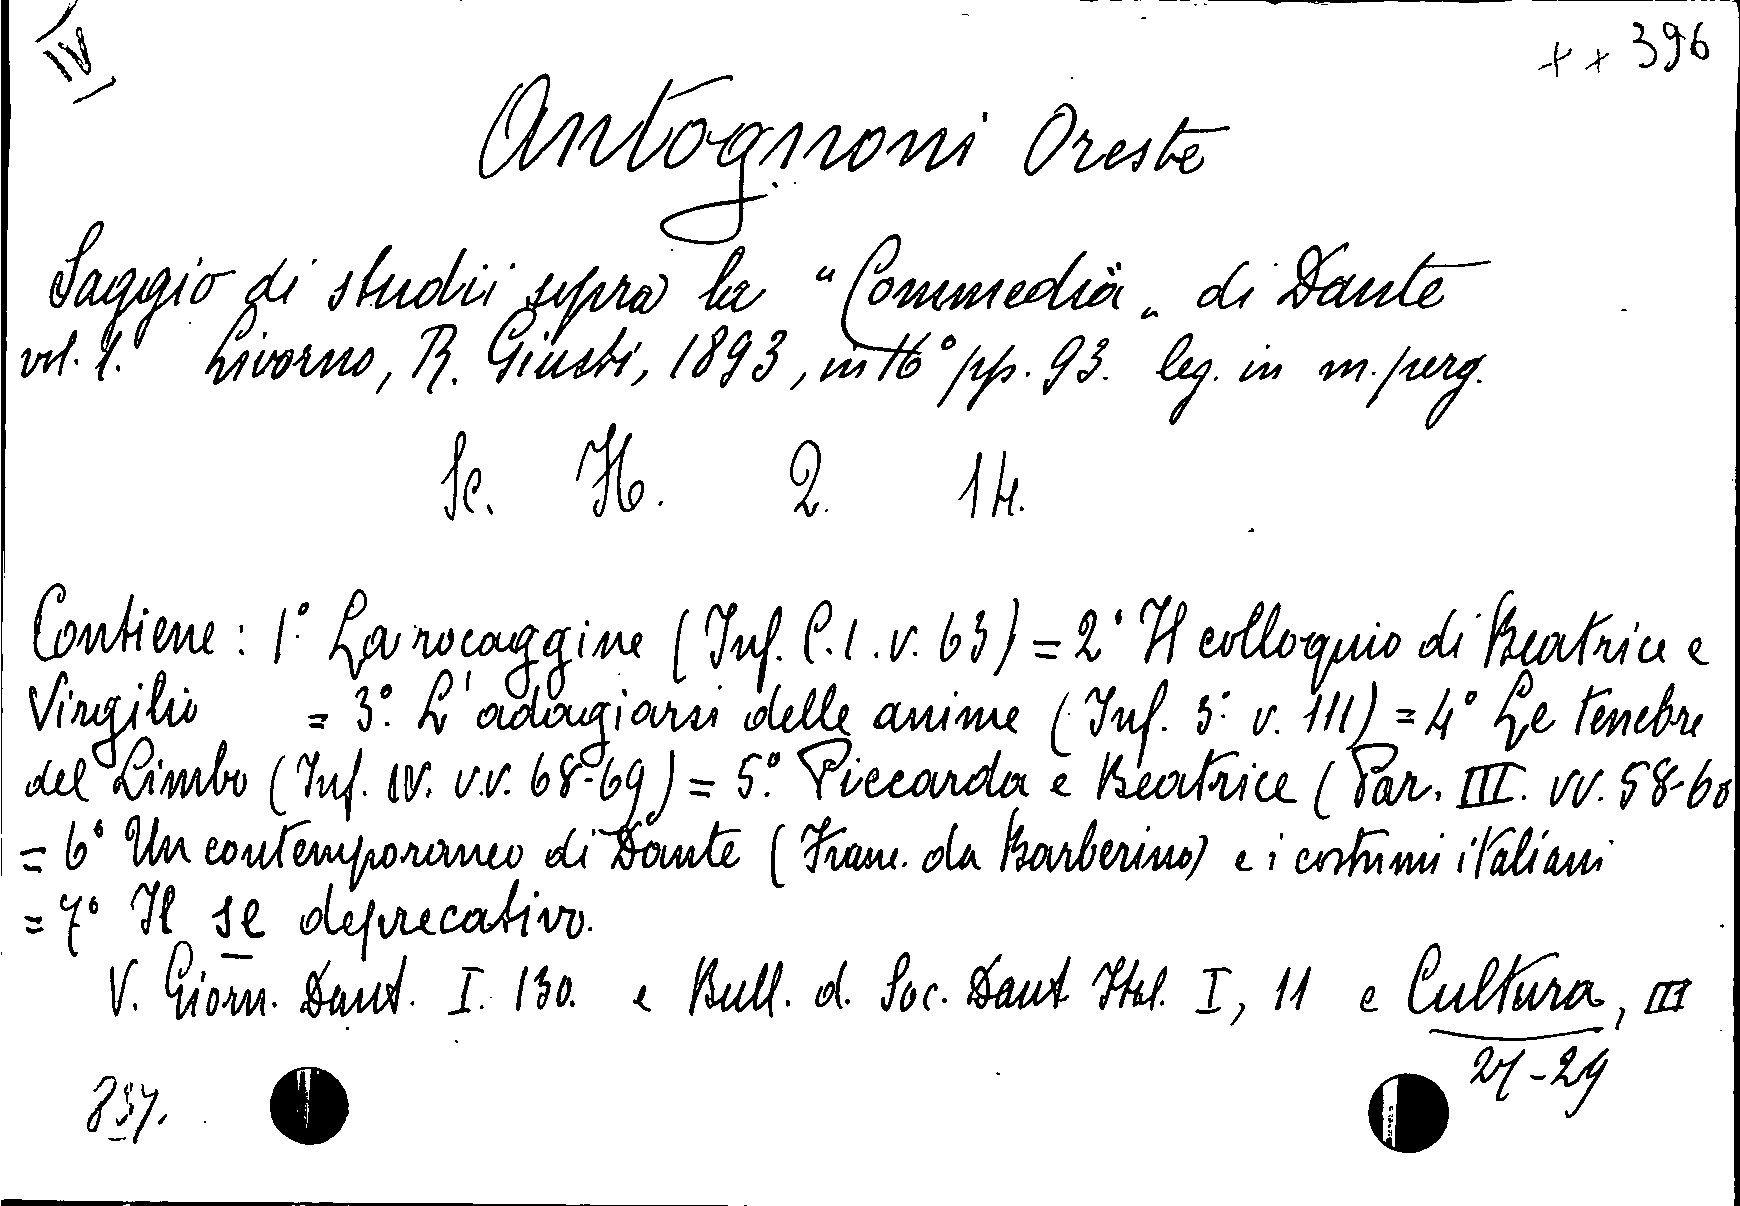 IV
+ + 396
Antognoni Oreste
Saggio di studii sopra la "Commedia" di Dante
vol. 1. Livorno, R. Giusti, 1893, in 16° pp. 93. leg. in m. perg.
Sc. H. 2. 14.
Contiene: 1°. La rocaggine (Inf. C. 1. v. 63) = 2° Il colloquio di Beatrice e
Virgilio = 3°. L'adagiarsi delle anime (Inf. 3° v. 111) = 4° Le tenebre
del Limbo (Inf. IV. v.v. 68-69) = 5° Piccarda e Beatrice (Par. III. vv. 58-60
= 6° Un contemporaneo di Dante (Franc. da Barberino) e i costumi italiani
= 7° Il se deprecativo.
V. Giorn. Dant. I. 130. e Bull. d. Soc. Dant. Ital. I, 11 e Cultura, III
27-29
837.